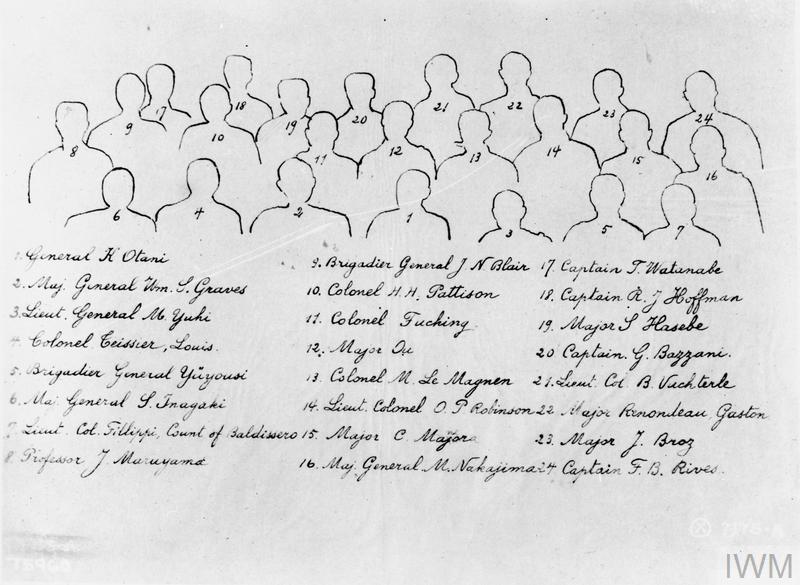 18
22
21
7
9
20
23
24
19
10
8
11
12
13
14
15
16
6
4
2
1
3
5
7
1. General K Otani
2. Maj. General Wm. S. Graves
3. Lieut. General M. Yuhi
4. Colonel Teissier, Louis.
5. Brigadier General Yüyousi
6. Maj. General S. Inagaki
7. Lieut. Col. Fillippi, Count of Baldissero
8. Professor J. Maruyama
9. Brigadier General J N Blair
10. Colonel H. H. Pattison
11. Colonel Fuching
12. Major Ou
13. Colonel M. Le Magnen
14. Lieut. Colonel O. P. Robinson
15. Major C. Majora
16. Maj. General M. Nakajima
17. Captain T. Watanabe
18. Captain R. J Hoffman
19. Major S Hasebe
20 Captain. G. Bazzani.
21. Lieut. Col B. Vuchterle
22. Major Rmondeau, Gaston
23. Major J. Broz
24 Captain F. B. Rives.
IWM